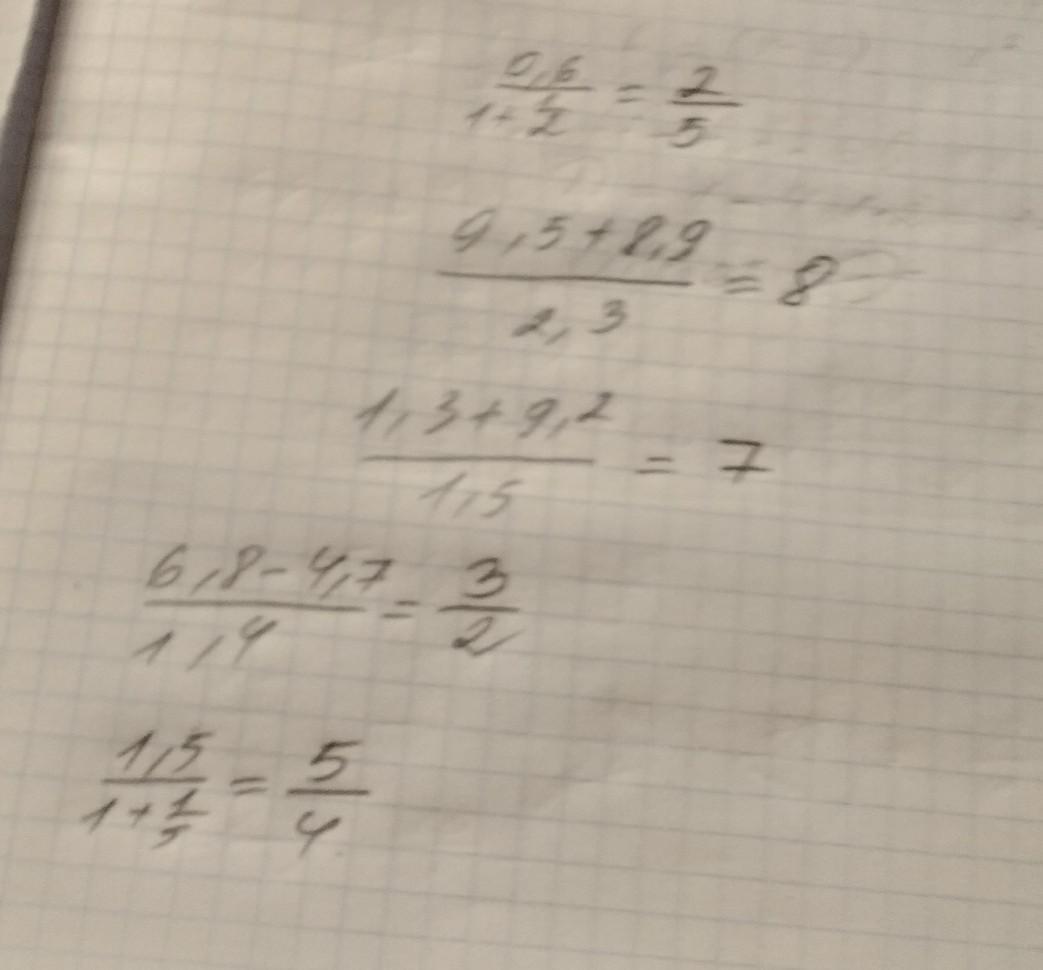 0,6/(1+1/2) = 2/5
9,5+8,9/2,3 = 8
1,3+9,2/1,5 = 7
6,8-4,7/1,4 = 3/2
1,5/(1+1/5) = 5/4